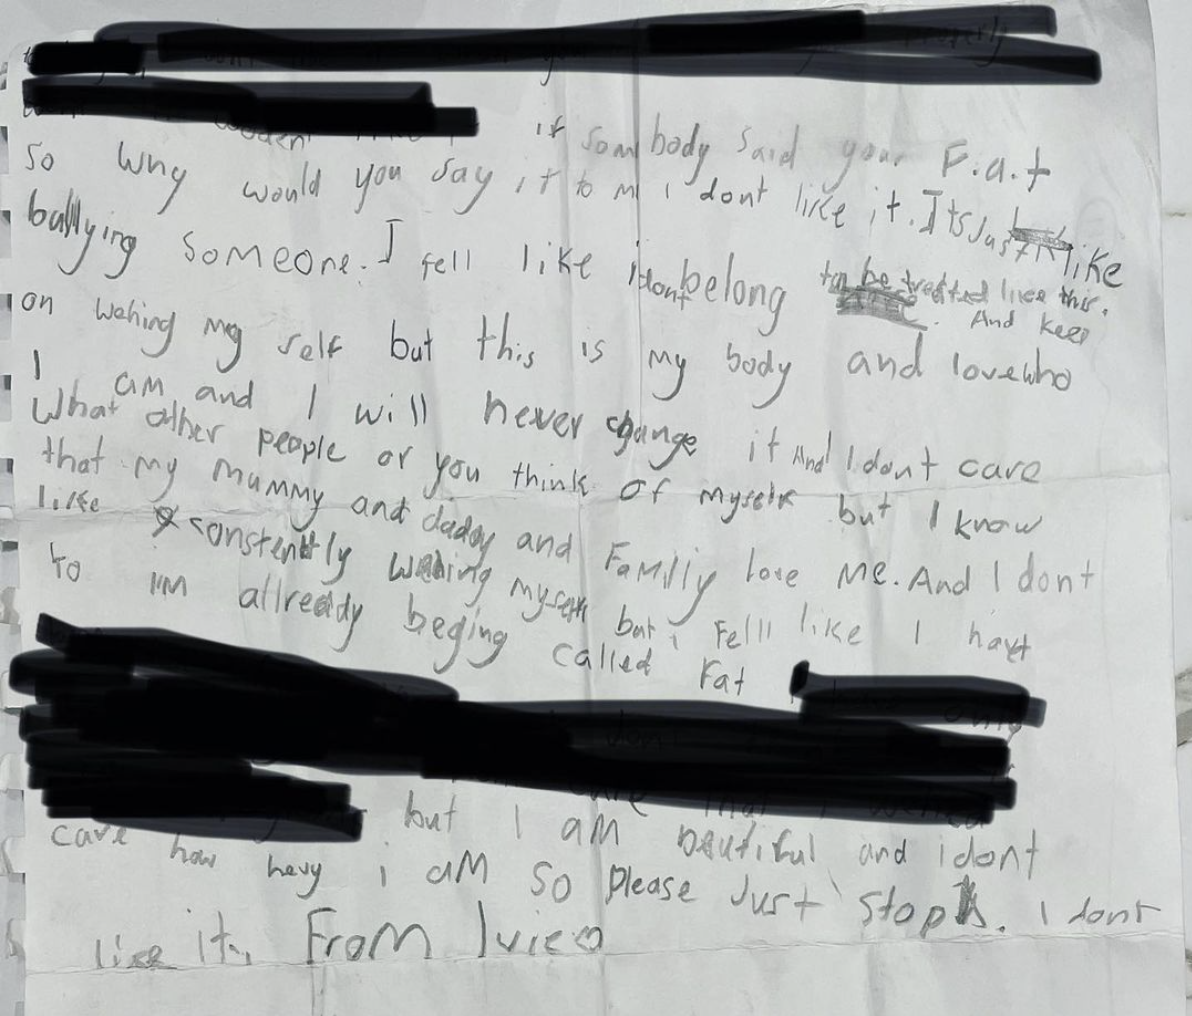 if som body said your F.a.t
so why would you say it to m i dont like it. Its Just like
bullying someone. I fell like i dont belong to be treated like this.
And keep
on wehing my self but this is my body and love who
I am and I will never change it And I dont care
What other people or you think of myself but I know
that my mummy and daddy and Familly love me. And I dont
like constently wehing myself but i Felll like I havt
to i'm allready beging called Fat
but I am beautiful and i dont
care how hevy i am so please Just stop. I dont
like it. From Ivie